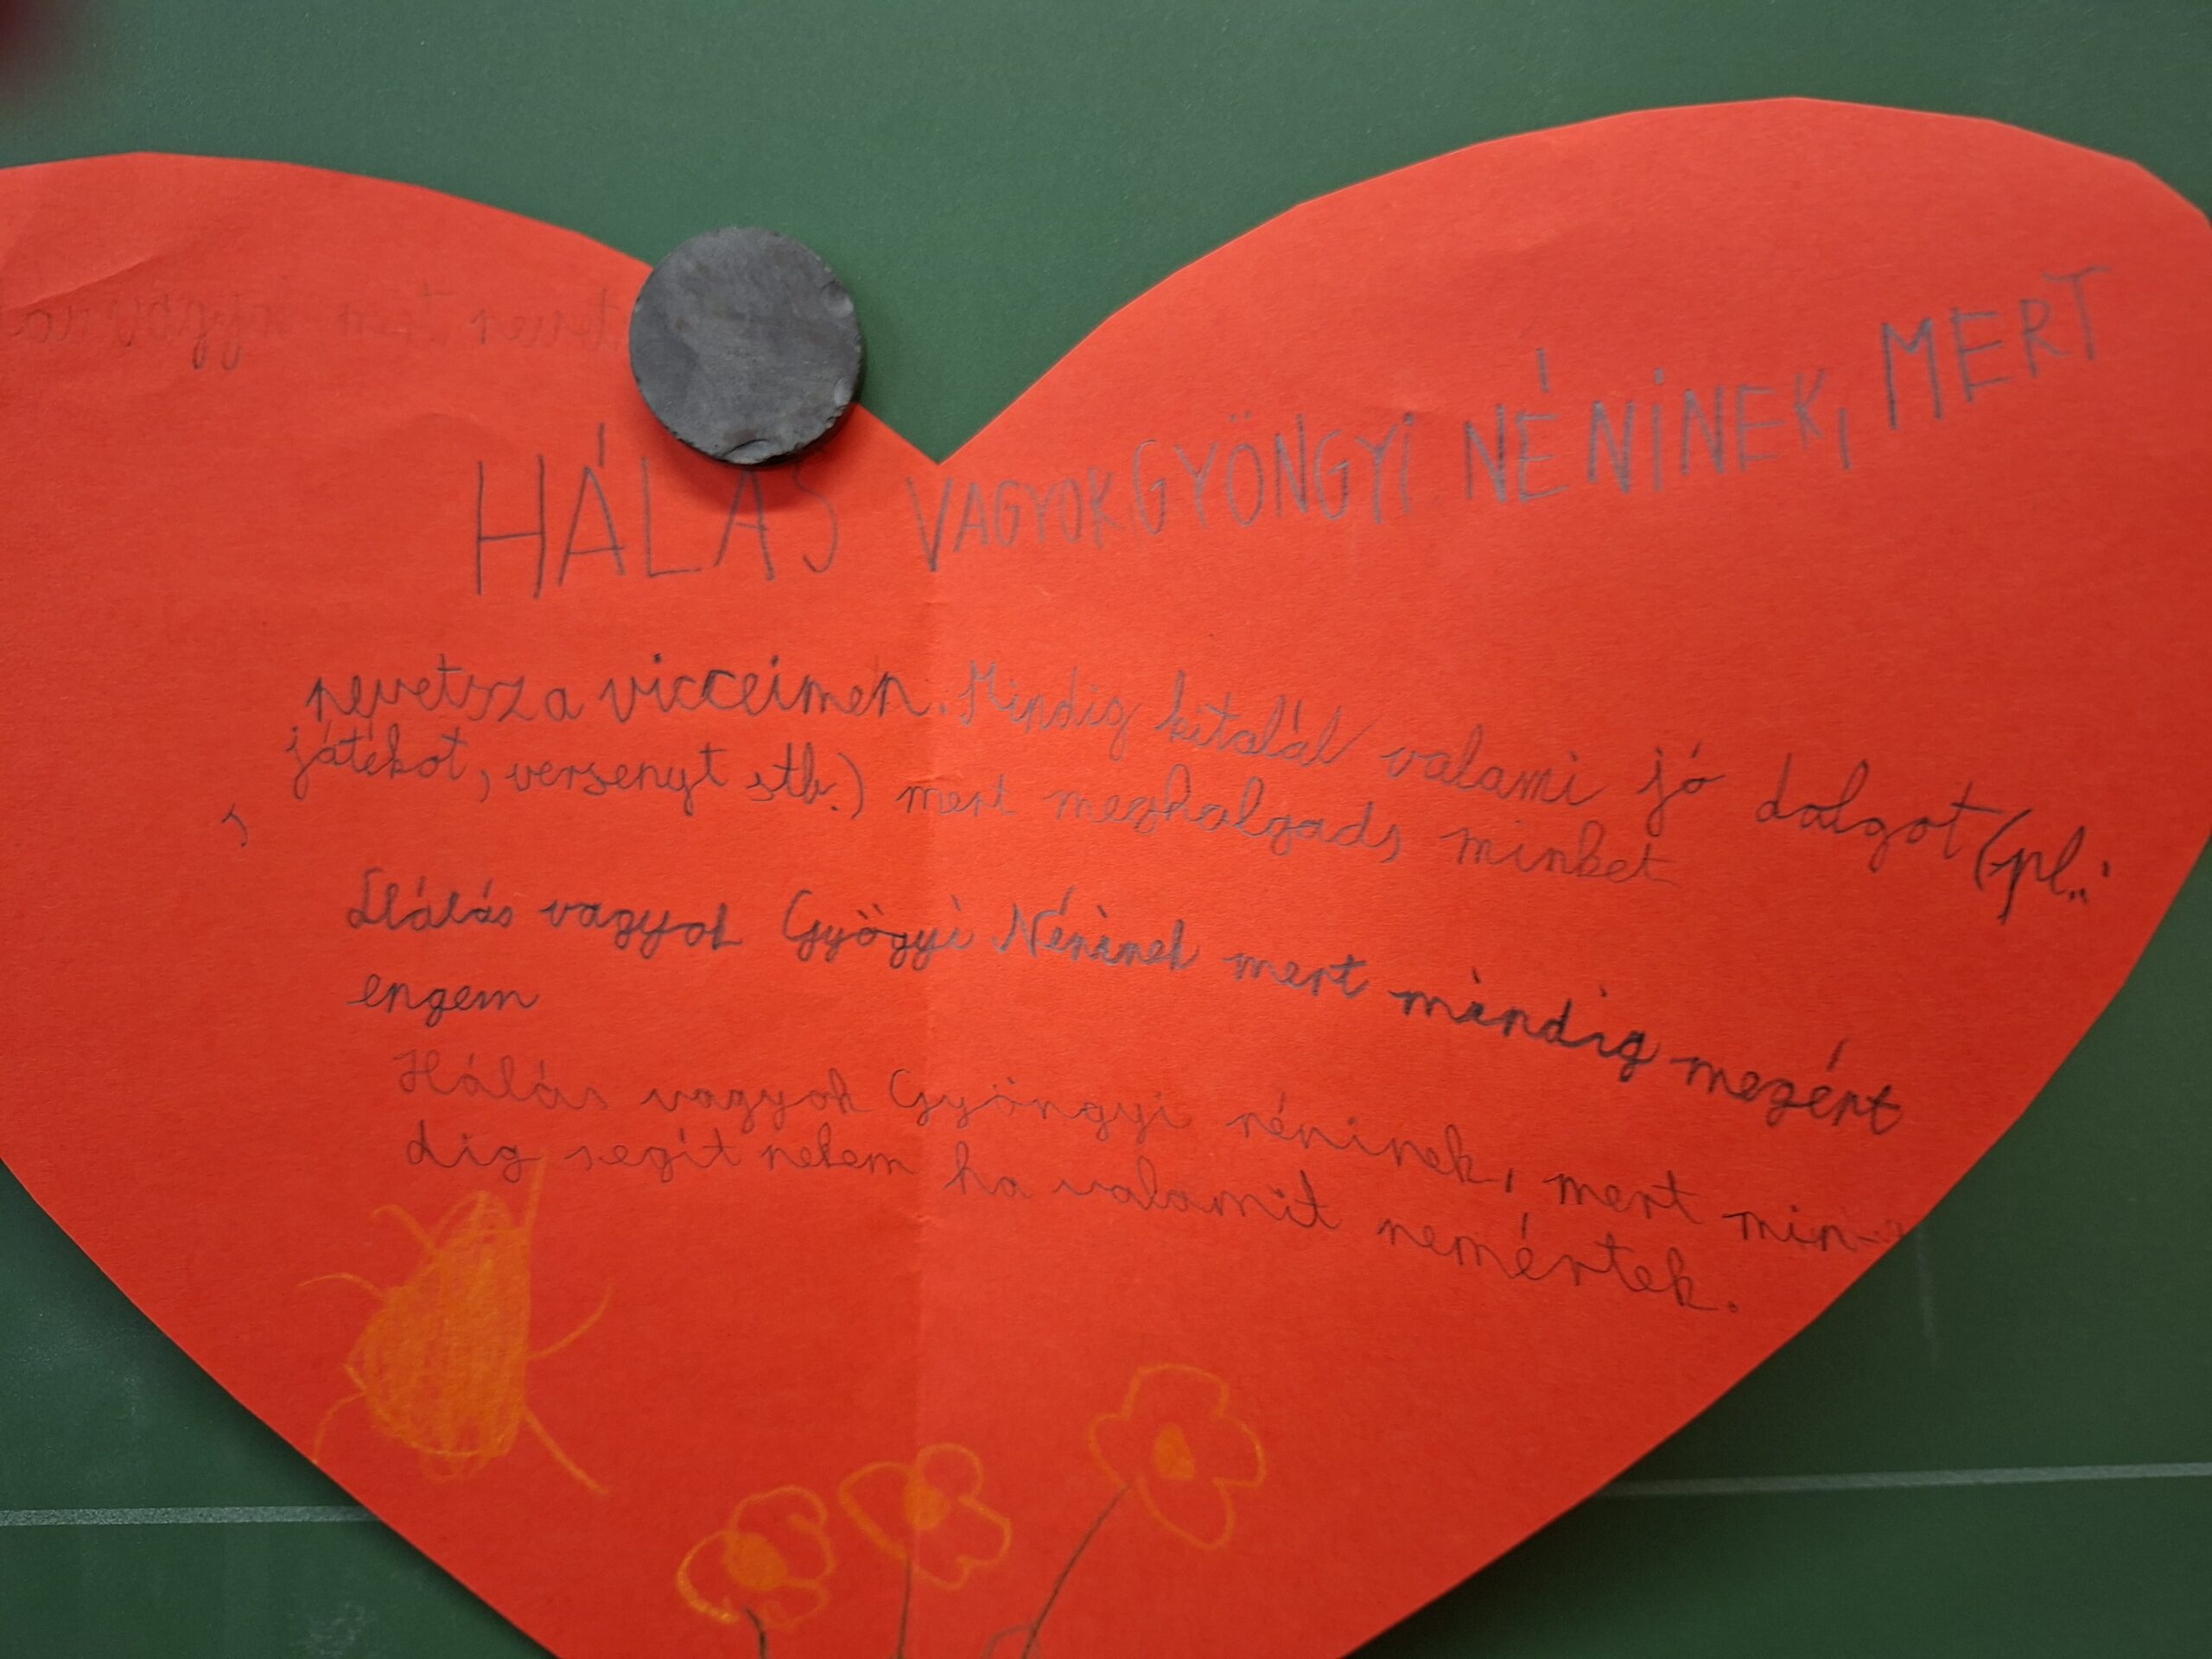 HÁLÁS VAGYOK GYÖNGYI NÉNINEK, MERT
nevetsz a vicceimen. Mindig kitalál valami jó dolgot (pl.:
játékot, versenyt stb.) mert meghalgads minket
Hálás vagyok Gyögyi Néninek mert mindig megért
engem
Hálás vagyok Gyöngyi néninek, mert min-
dig segít nekem ha valamit nemértek.